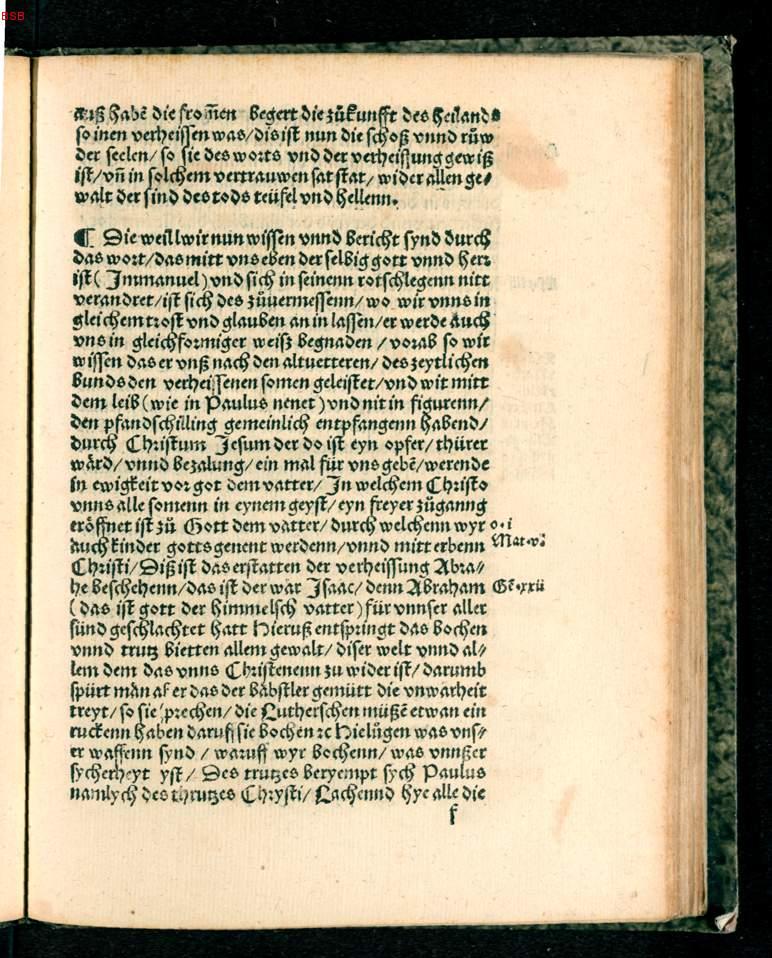 BSB
auß habē die from̄en begert die zůkunfft des heilands
so inen verheissen was/dis ist nun die schoß vnnd růw
der seelen/so sie des worts vnd der verheißung gewiß
ist/vn̄ in solchem vertrauwen sat stat/wider allen ge⸗
walt der sind des tods teüfel vnd hellenn.
¶ Die weill wir nun wissen vnnd bericht synd durch
das wort/das mitt vns eben der selbig gott vnnd herr
ist( Immanuel)vnd sich in seinenn rotschlegenn nitt
verandret/ist sich des zůuermessenn/wo wir vnns in
gleichem trost vnd glauben an in lassen/er werde auch
vns in gleichformiger weisz begnaden/vorab so wir
wissen das er vnß nach den altuetteren/des zeytlichen
bunds den verheissenen somen geleistet/vnd wit mitt
dem leib(wie in Paulus nenet)vnd nit in figurenn/
den pfandschilling gemeinlich entpfangenn habend/
durch Christum Jesum der do ist eyn opfer/thürer
wärd/vnnd bezalung/ein mal für vns gebē/werende
in ewigkeit vor got dem vatter/In welchem Christo
vnns alle somenn in eynem geyst/eyn freyer zůganng
eröffnet ist zů Gott dem vatter/durch welchenn wyr
o.i
auch kinder gotts genent werdenn/vnnd mitt erbenn
Mat.v.
Christi/Diß ist das erstatten der verheissung Abra⸗
he beschehenn/das ist der war Isaac/denn Abraham
Gē.xxii
(das ist gott der himmelsch vatter)für vnnser aller
sünd geschlachtet hatt Hieruß entspringt das bochen
vnnd trutz bietten allem gewalt/diser welt vnnd al⸗
lem dem das vnns Christenenn zu wider ist/darumb
spürt män aber das der bäbstler gemütt die vnwarheit
treyt/so sie sprechen/die Lutherschen müßē etwan ein
ruckenn haben daruff sie bochen ꝛc Hie lügen was vns⸗
er waffenn synd/waruff wyr bochenn/was vnnßer
sycherheyt yst/Des trutzes beryempt sych Paulus
namlych des thrutzes Chrysti/Lachennd hye alle die
f